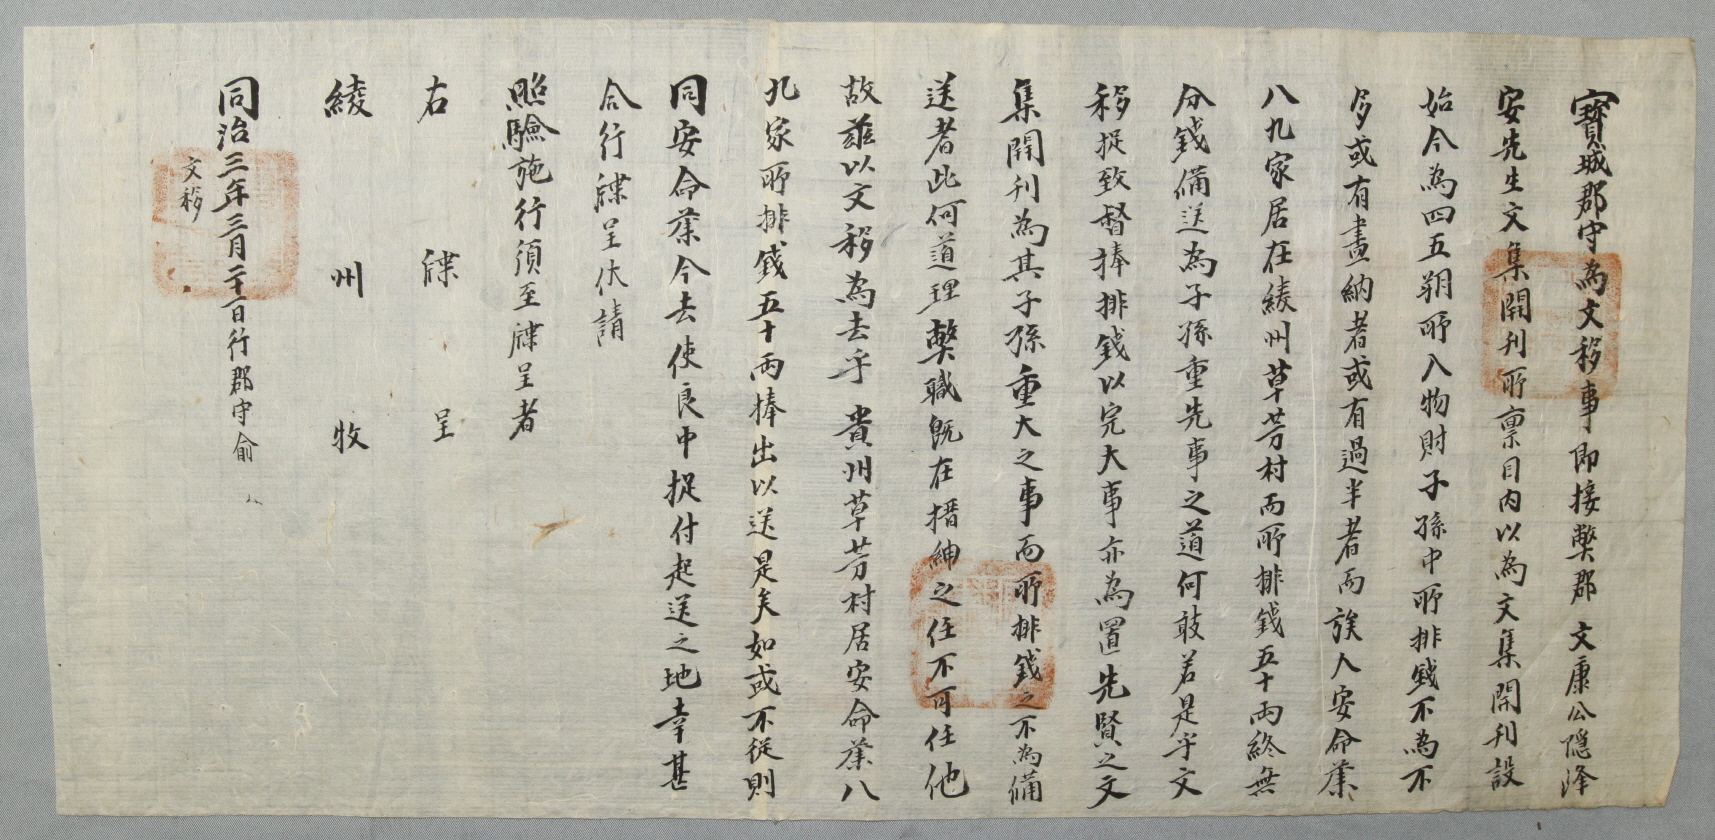 寶城郡守爲文移事卽接弊郡 文康公隱澤
安先生文集開刊所稟目內以爲文集開刊設
始今爲四五朔所入物財子孫中所排錢不爲不
多或有畫納者或有過半者而族人安命䕒
八九家居在綾州草芳村而所排錢五十兩終無
分錢備送爲子孫重先事之道何敢若是乎文
移捉致督捧排錢以完大事亦爲置先賢之文
集開刊爲其子孫重大之事而所排錢之不爲備
送者此何道理弊職旣在搢紳之任不可任他
故玆以文移爲去乎 貴州草芳村居安命䕒八
九家所排錢五十兩捧出以送是矣如或不從則
同安命䕒今去使良中捉付起送之地幸甚
合行牒呈伏請
照驗施行須至牒呈者
右 牒 呈
綾 州 牧
同治三年三月二十日行郡守俞
文移